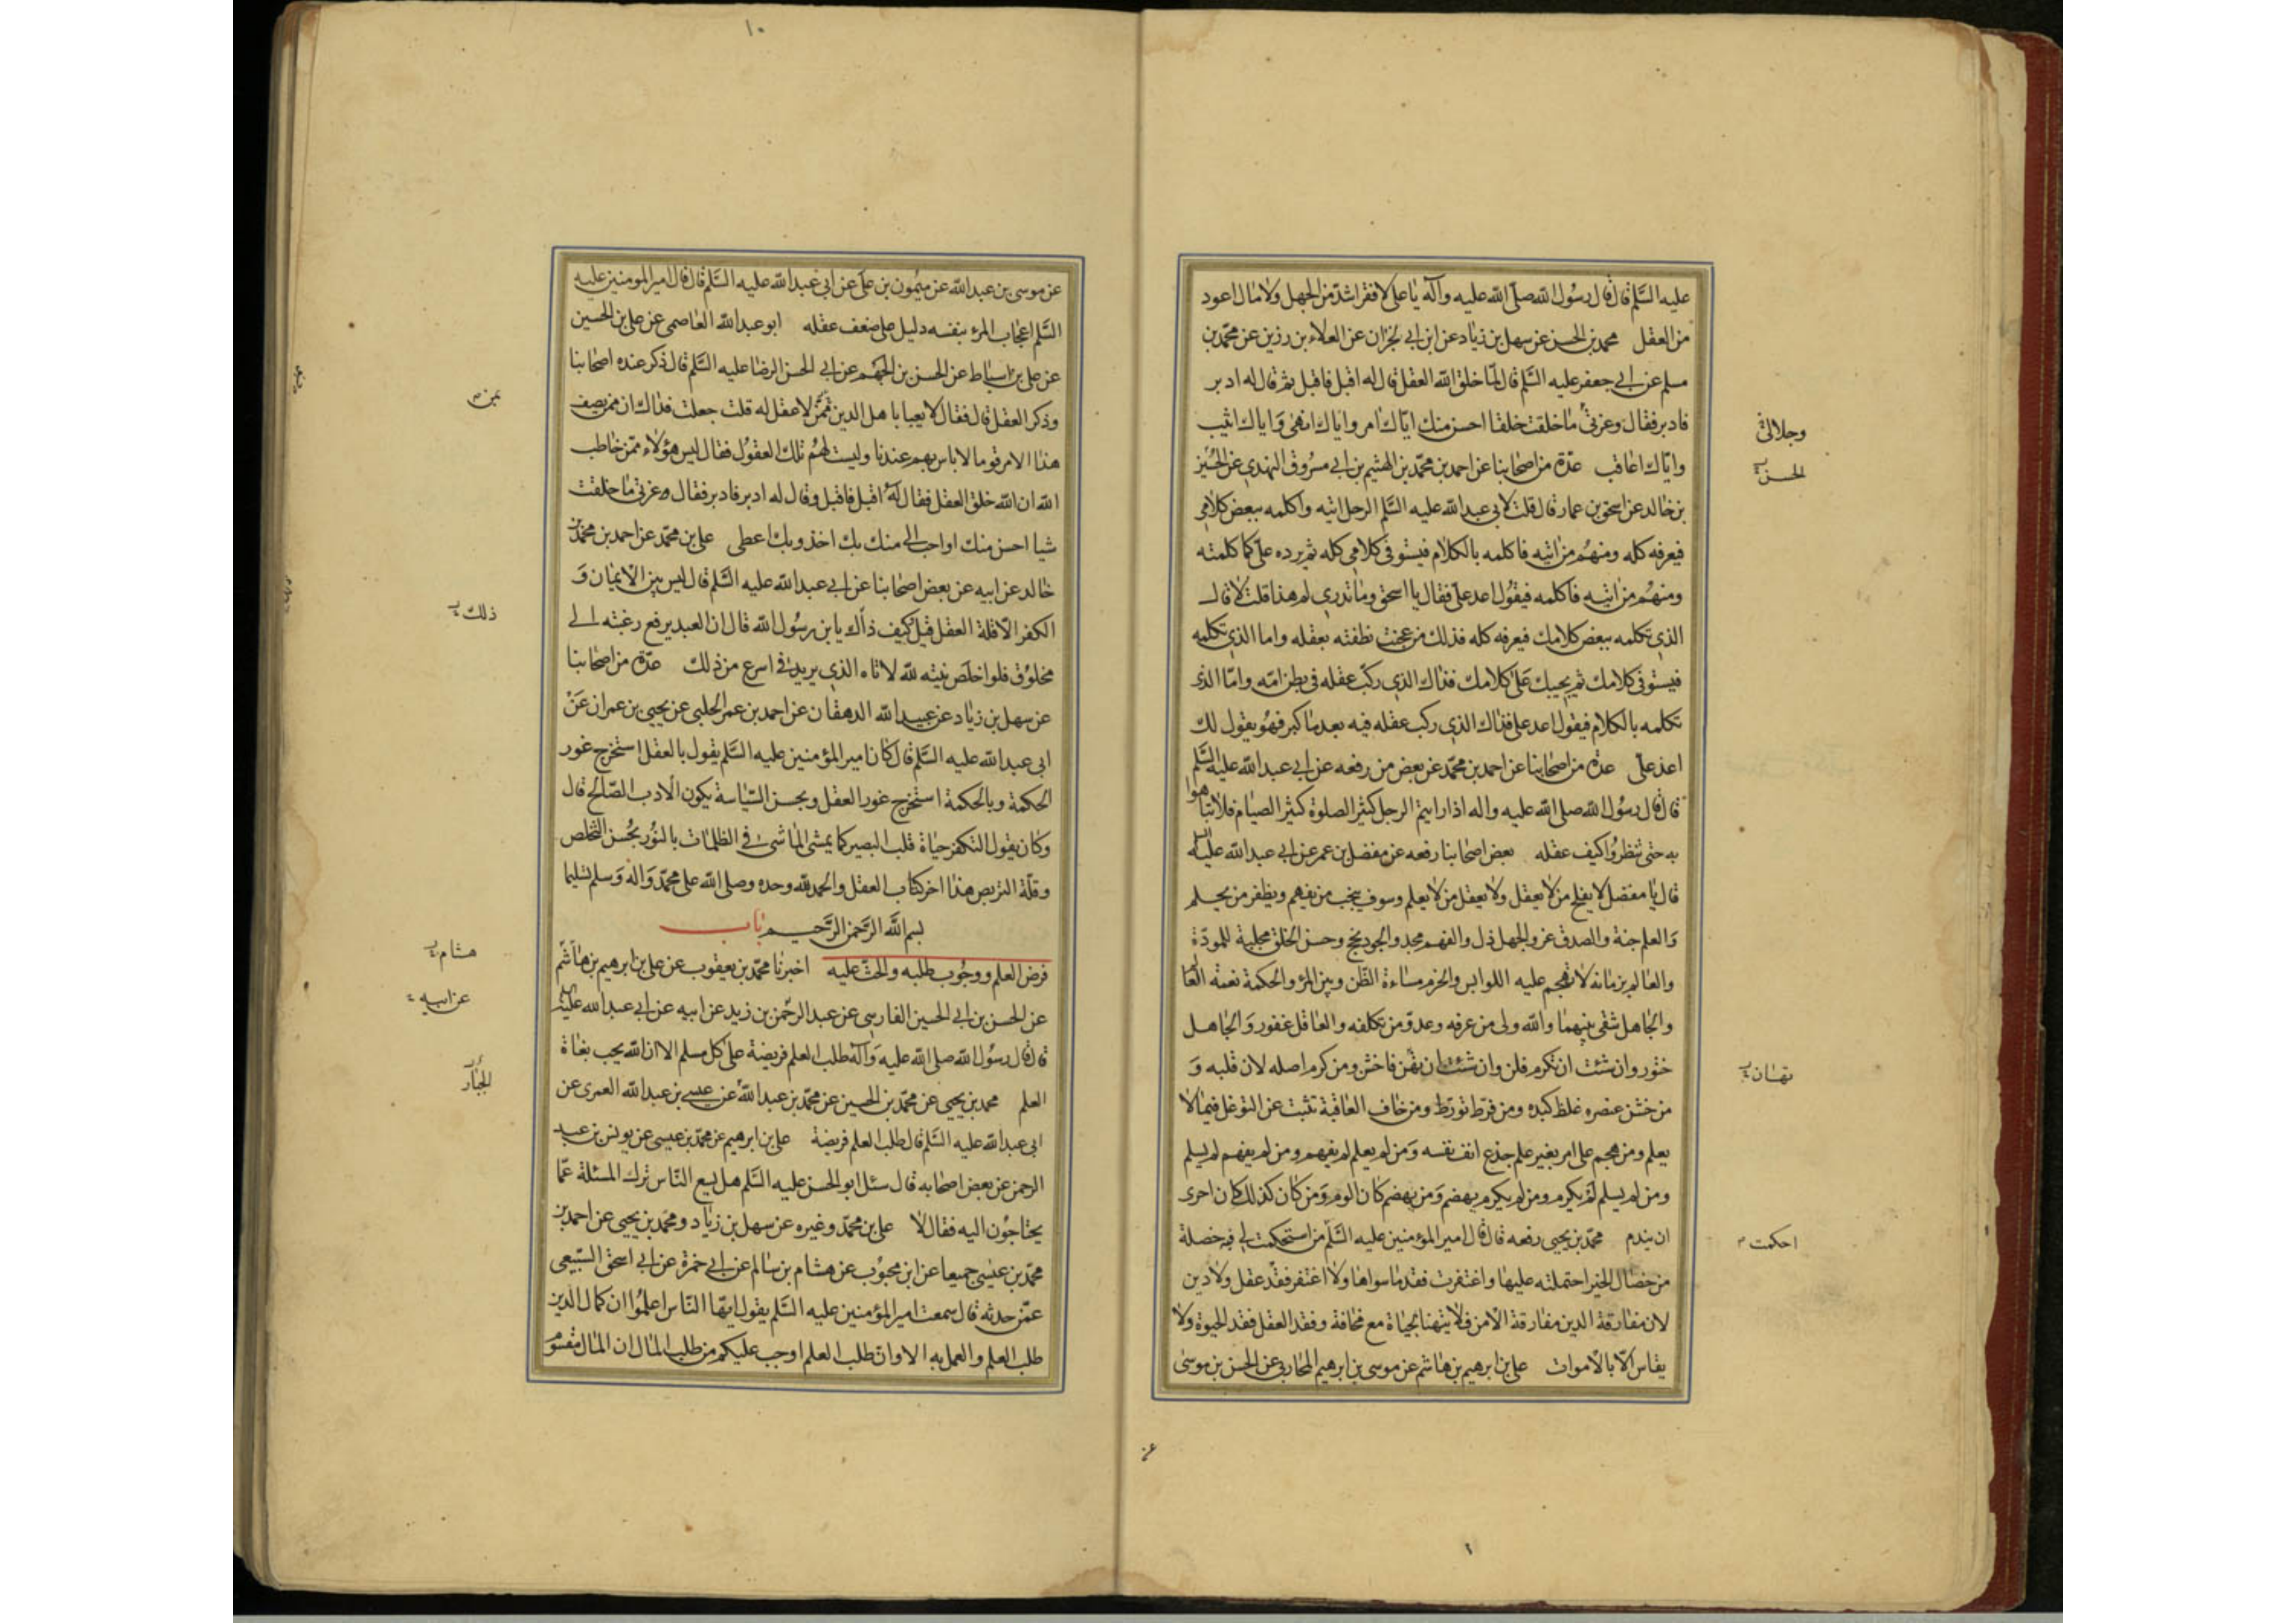 عليه السلم قال قال رسول الله صلى الله عليه وآله يا على لا فقر اشد من الجهل ولا مال اعود
من العقل محمد بن الحسن عن سهل بن زياد عن ابن ابي نجران عن العلاء بن رزين عن محمد بن
مسلم عن ابي جعفر عليه السلم قال لما خلق الله العقل قال له اقبل فاقبل ثم قال له ادبر
فادبر فقال وعزتي ما خلقت خلقا احسن منك اياك امر واياك انهى واياك اثيب
واياك اعاقب عدة من اصحابنا عن احمد بن محمد بن الهثيم بن ابي مسروق النهدي عن الحسين
بن خالد عن اسحق بن عمار قال قلت لابي عبد الله عليه السلم الرجل اتيه واكلمه ببعض كلامي
فيعرفه كله ومنهم من اتيه فاكلمه بالكلام فيستوفي كلامي كله ثم يرده على كما كلمته
ومنهم من اتيه فاكلمه فيقول اعد على فقال يا اسحق وما تدري لم هذا قلت لا قال
الذي تكلمه ببعض كلامك فيعرفه كله فذلك من عجنت نطفته بعقله واما الذي تكلمه
فيستوفي كلامك ثم يجيبك على كلامك فذاك الذي ركب عقله في بطن امه واما الذي
تكلمه بالكلام فيقول اعد على فذاك الذي ركب عقله فيه بعد ما كبر فهو يقول لك
اعد على عدة من اصحابنا عن احمد بن محمد عن بعض من رفعه عن ابي عبد الله عليه السلم
قال قال رسول الله صلى الله عليه واله اذا رايتم الرجل كثير الصلوة كثير الصيام فلا تباهوا
به حتى تنظروا كيف عقله بعض اصحابنا رفعه عن مفضل بن عمر عن ابي عبد الله عليه السلم
قال يا مفضل لا يفلح من لا يعقل ولا يعقل من لا يعلم وسوف ينجب من يفهم ويظفر من يحلم
والعلم جنة والصدق عز والجهل ذل والفهم مجد والجود نجح وحسن الخلق مجلبة للمودة
والعالم بزمانه لا تهجم عليه اللوابس والحزم مساءة الظن وبين المرؤ والحكمة نعمة العالم
والجاهل شقى بينهما والله ولى من عرفه وعدو من تكلفه والعاقل غفور والجاهل
ختور وان شئت ان تكرم فلن وان شئت ان تهن فاخشن ومن كرم اصله لان قلبه و
من خشن عنصره غلظ كبده ومن فرط تورط ومن خاف العاقبة تثبت عن التوغل فيما لا
يعلم ومن هجم على امر بغير علم جذع انف نفسه ومن لم يعلم لم يفهم ومن لم يفهم لم يسلم
ومن لم يسلم لم يكرم ومن لم يكرم يهضم ومن يهضم كان الوم ومن كان كذلك كان احرى
ان يندم محمد بن يحيى رفعه قال قال امير المؤمنين عليه السلم من استحكمت لي فيه خصلة
من خصال الخير احتملته عليها واغتفرت فقد ما سواها ولا اغتفر فقد عقل ولا دين
لان مفارقة الدين مفارقة الامن فلا يتهنا بحياة مع مخافة وفقد العقل فقد الحيوة ولا
يقاس الا بالاموات على بن ابرهيم بن هاشم عن موسى بن ابرهيم المحاربي عن الحسن بن موسى
وجلالتي
الحسن
تهان
احكمت
عن
١٠
عن موسى بن عبد الله عن ميمون بن على عن ابي عبد الله عليه السلم قال قال امير المومنين عليه
السلم اعجاب المرء بنفسه دليل على ضعف عقله ابو عبد الله العاصمى عن على بن الحسين
عن على بن اسباط عن الحسن بن الجهم عن ابي الحسن الرضا عليه السلم قال ذكر عنده اصحابنا
وذكر العقل قال فقال لا يعبا باهل الدين ممن لا عقل له قلت جعلت فداك ان ممن يصف
هذا الامر قوما لا باس بهم عندنا وليست لهم تلك العقول فقال ليس هؤلاء ممن خاطب
الله ان الله خلق العقل فقال له اقبل فاقبل وقال له ادبر فادبر فقال وعزتي ما خلقت
شيا احسن منك او احب الي منك بك اخذ وبك اعطى على بن محمد عن احمد بن محمد بن
خالد عن ابيه عن بعض اصحابنا عن ابي عبد الله عليه السلم قال ليس بين الايمان و
الكفر الا قلة العقل قيل كيف ذاك يا بن رسول الله قال ان العبد يرفع رغبته الى
مخلوق فلو اخلص نيته لله لاتاه الذي يريد في اسرع من ذلك عدة من اصحابنا
عن سهل بن زياد عن عبيد الله الدهقان عن احمد بن عمر الحلبي عن يحيى بن عمران عن
ابي عبد الله عليه السلم قال كان امير المؤمنين عليه السلم يقول بالعقل استخرج غور
الحكمة وبالحكمة استخرج غور العقل وبحسن السياسة يكون الادب الصالح قال
وكان يقول التكفر حياة قلب البصير كما يمشي الماشي في الظلمات بالنور بحسن التخلص
وقلة التربص هذا اخر كتاب العقل والحمد لله وحده وصلى الله على محمد واله وسلم تسليما
بسم الله الرحمن الرحيم باب
فرض العلم ووجوب طلبه والحث عليه اخبرنا محمد بن يعقوب عن على بن ابرهيم بن هاشم
عن الحسن بن ابي الحسين الفارسي عن عبد الرحمن بن زيد عن ابيه عن ابي عبد الله عليه السلم
قال قال رسول الله صلى الله عليه وآله طلب العلم فريضة على كل مسلم الا ان الله يحب بغاة
العلم محمد بن يحيى عن محمد بن الحسين عن محمد بن عبد الله عن عيسى بن عبد الله العمرى عن
ابي عبد الله عليه السلم قال طلب العلم فريضة على بن ابرهيم عن محمد بن عيسى عن يونس بن عبد
الرحمن عن بعض اصحابه قال سئل ابو الحسن عليه السلم هل يسع الناس ترك المسئلة عما
يحتاجون اليه فقال لا على بن محمد وغيره عن سهل بن زياد ومحمد بن يحيى عن احمد بن
محمد بن عيسى جميعا عن ابن محبوب عن هشام بن سالم عن ابي حمزة عن ابي اسحق السبيعى
عمن حدثه قال سمعت امير المؤمنين عليه السلم يقول ايها الناس اعلموا ان كمال الدين
طلب العلم والعمل به الا وان طلب العلم اوجب عليكم من طلب المال ان المال مقسوم
بمن
ذلك
هشام
عن ابيه